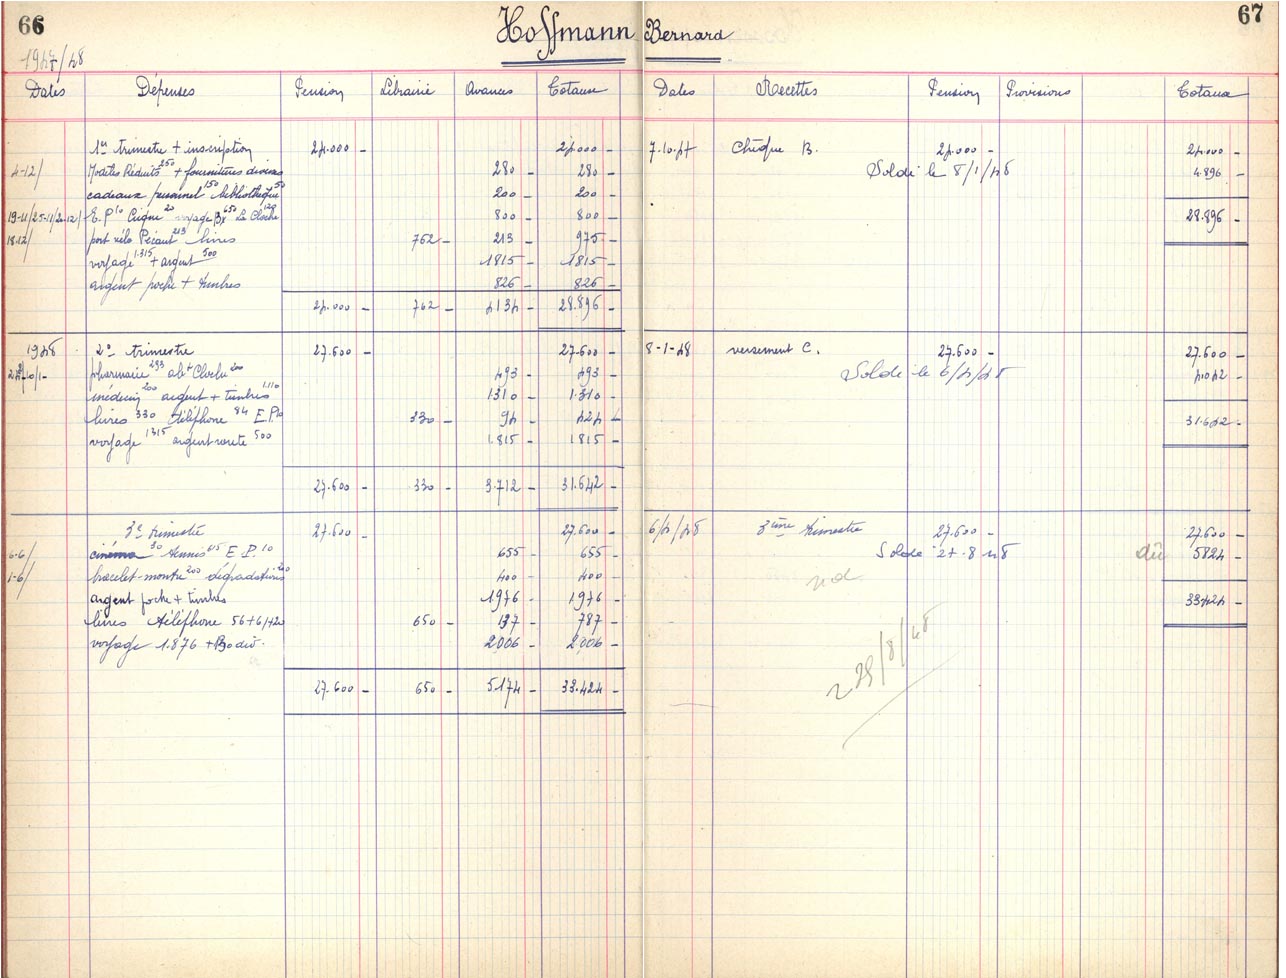 66
Hoffmann Bernard
67
1947/48
Dates Dépenses Pension Librairie Avances Totaux Dates Recettes Pension Provisions Totaux
1er trimestre + inscription 24.000 - 24.000 - 7.10.47 Chèque B. 24.000 - 24.000 -
4-12/ Modèles Réduits 250 + fournitures diverses 280 - 280 - Soldé le 8/1/48 4.896 -
cadeaux personnel 150 bibliothèque 50 200 - 200 -
19-11/25-11/2-12/ E.P 10 Cirque 20 voyage Bx 650 La Cloche 120 800 - 800 - 28.896 -
18.12/ port vélo Pécaut 213 livres 762 - 213 - 975 -
voyage 1.315 + argent 500 1815 - 1815 -
argent poche + timbres 826 - 826 -
24.000 - 762 - 4134 - 28.896 -
1948 2e trimestre 27.600 - 27.600 - 8-1-48 versement C. 27.600 - 27.600 -
pharmacie 293 abt Cloche 200 493 - 493 - Soldé le 6/4/48 4042 -
médecin 200 argent + timbres 1.110 1310 - 1.310 -
livres 330 téléphone 84 E.P. 10 330 - 94 - 424 - 31.642 -
voyage 1315 argent 500 1.815 - 1815 -
27.600 - 330 - 3.712 - 31.642 -
3e trimestre 27.600 - 27.600 - 6/4/48 3ème trimestre 27.600 - 27.600 -
6-6/ cinéma 30 tennis 615 E.P. 10 655 - 655 - Soldé 27.8 48 dû 5824 -
1-6/ bracelet-montre 200 dégradations 200 400 - 400 -
argent poche + timbres 1976 - 1976 - 33424 -
livres téléphone 56+61+20 650 - 137 - 787 -
voyage 1.876 + 130 div. 2.006 - 2.006 -
28/8/48
27.600 - 650 - 5174 - 33.424 -